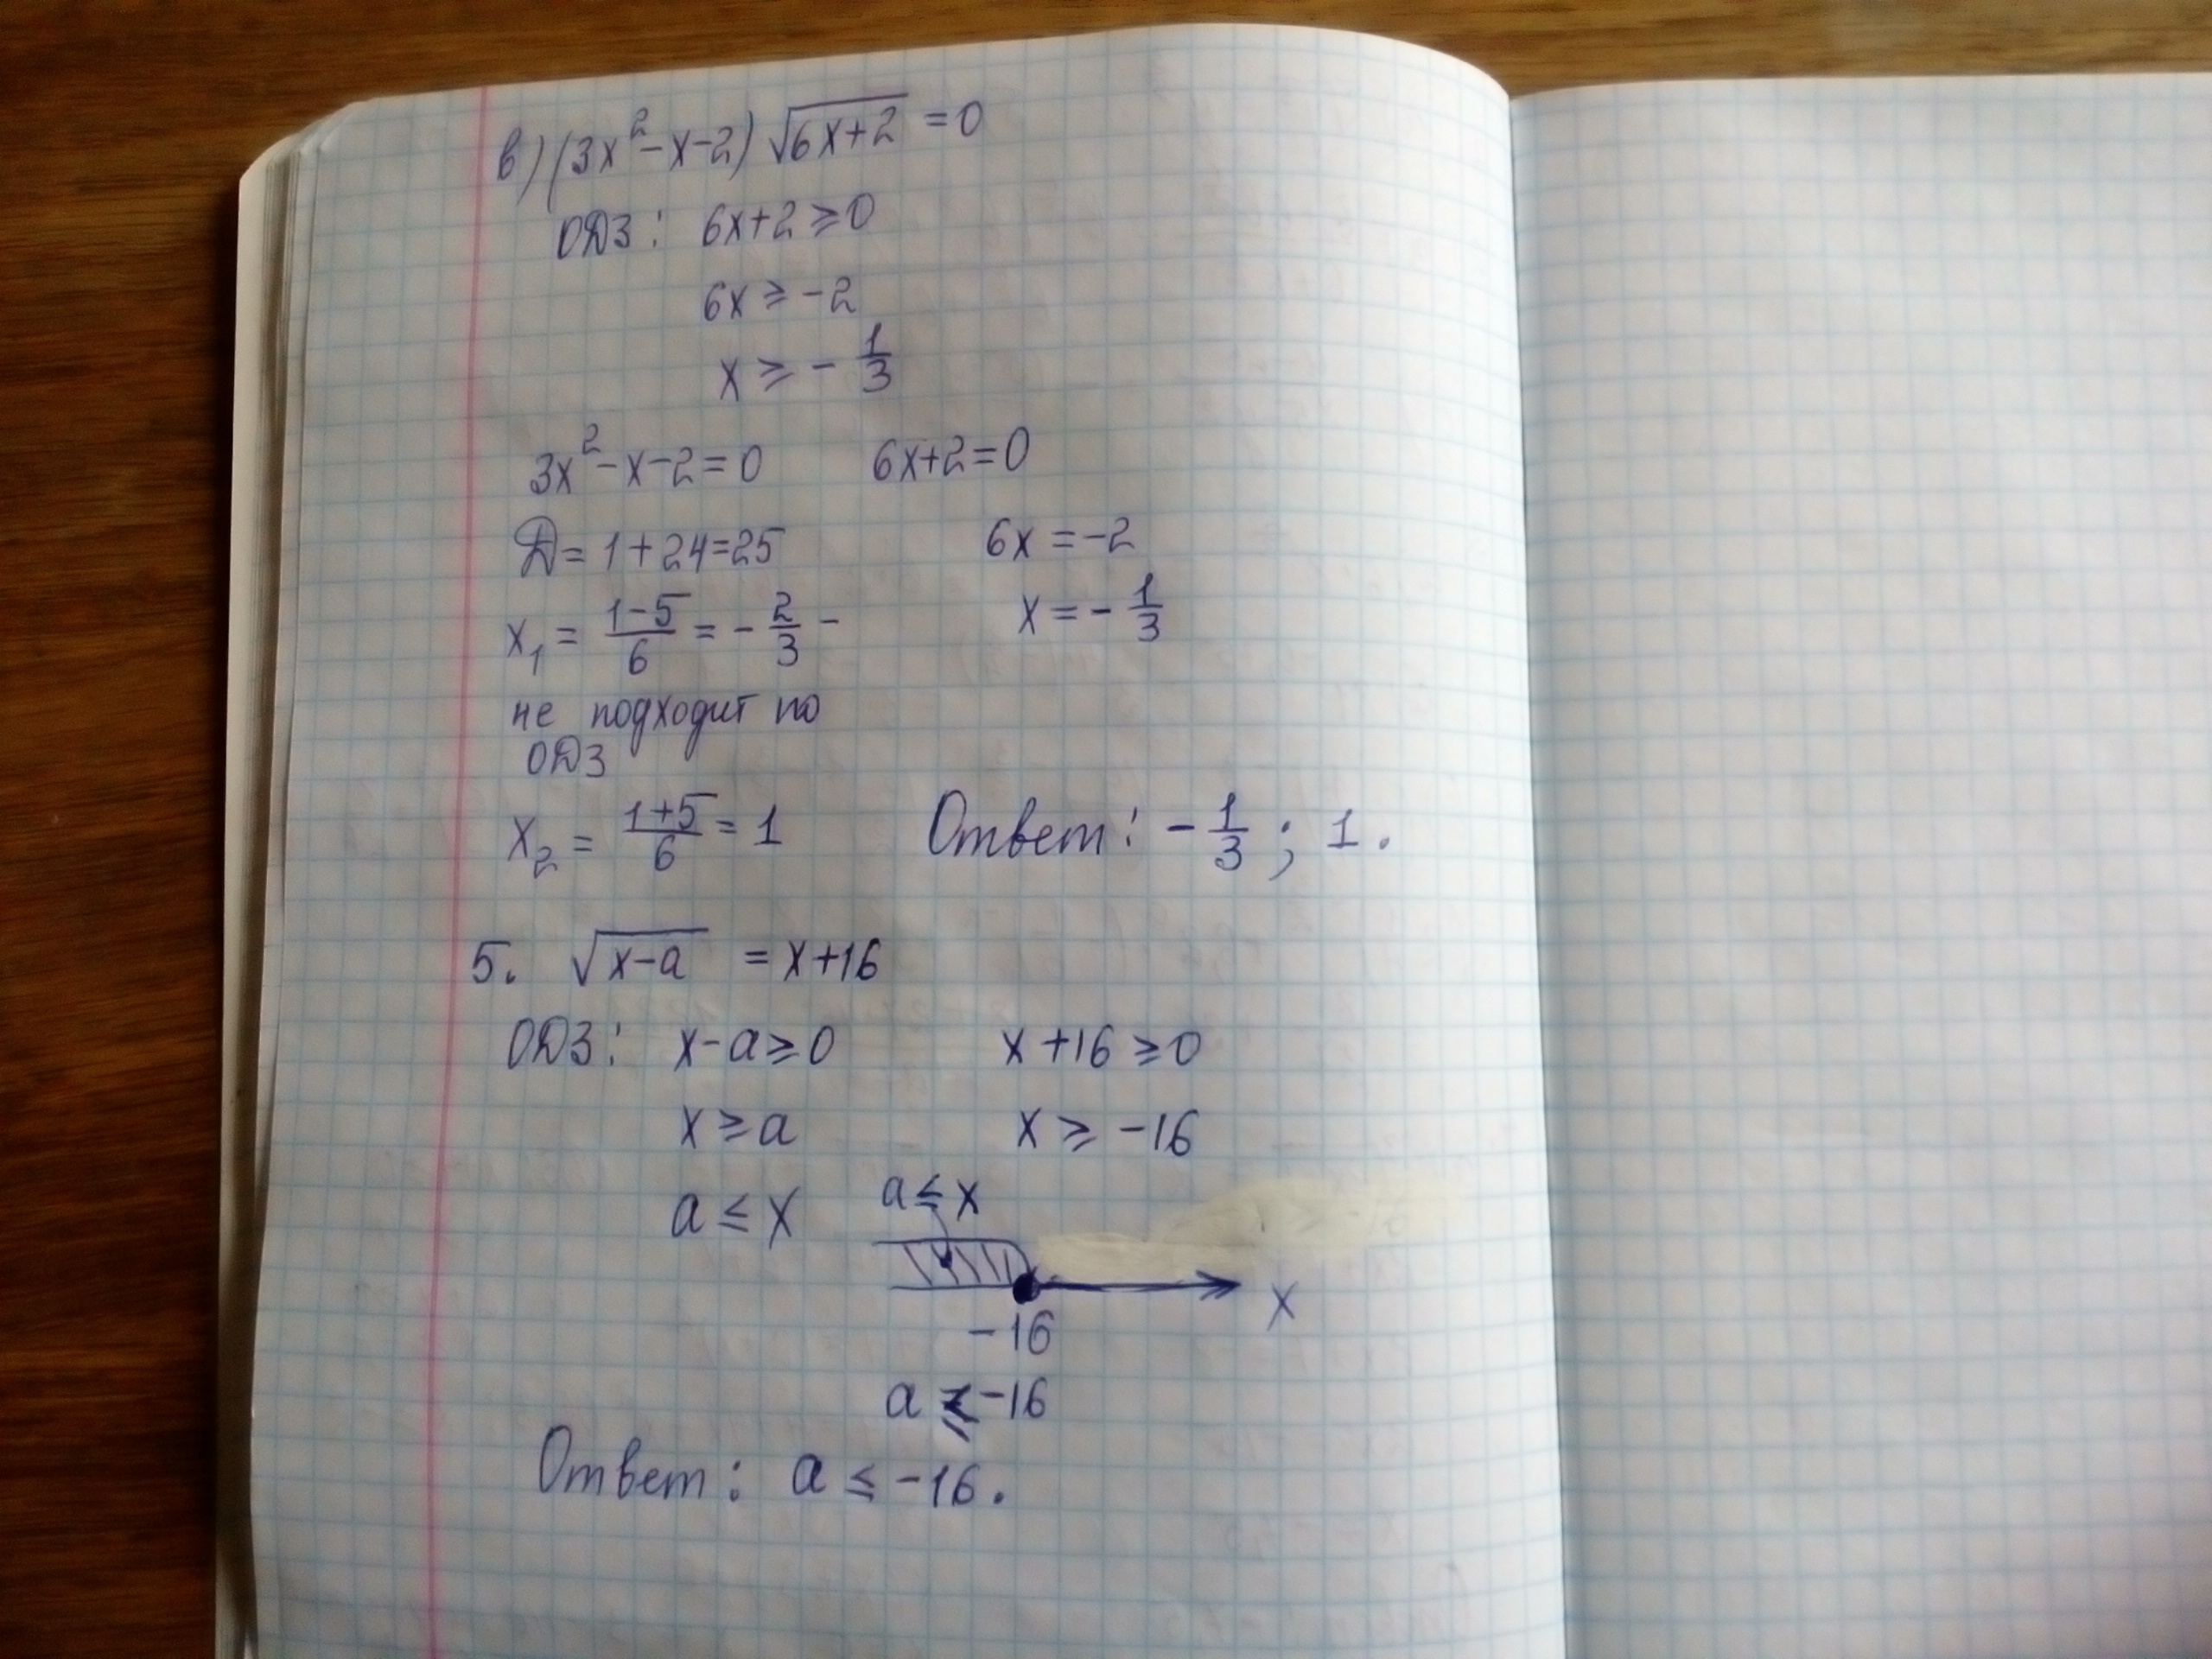 в) (3x²-x-2) √(6x+2) = 0
ОДЗ: 6x+2 ≥ 0
6x ≥ -2
x ≥ - 1/3
3x²-x-2=0 6x+2=0
D = 1+24=25 6x = -2
x₁ = (1-5)/6 = - 2/3 - x = - 1/3
не подходит по
ОДЗ
x₂ = (1+5)/6 = 1 Ответ: - 1/3 ; 1.
5. √(x-a) = x+16
ОДЗ: x-a ≥ 0 x+16 ≥ 0
x ≥ a x ≥ -16
a ≤ x a ≤ x
x
-16
a ≤ -16
Ответ: a ≤ -16.